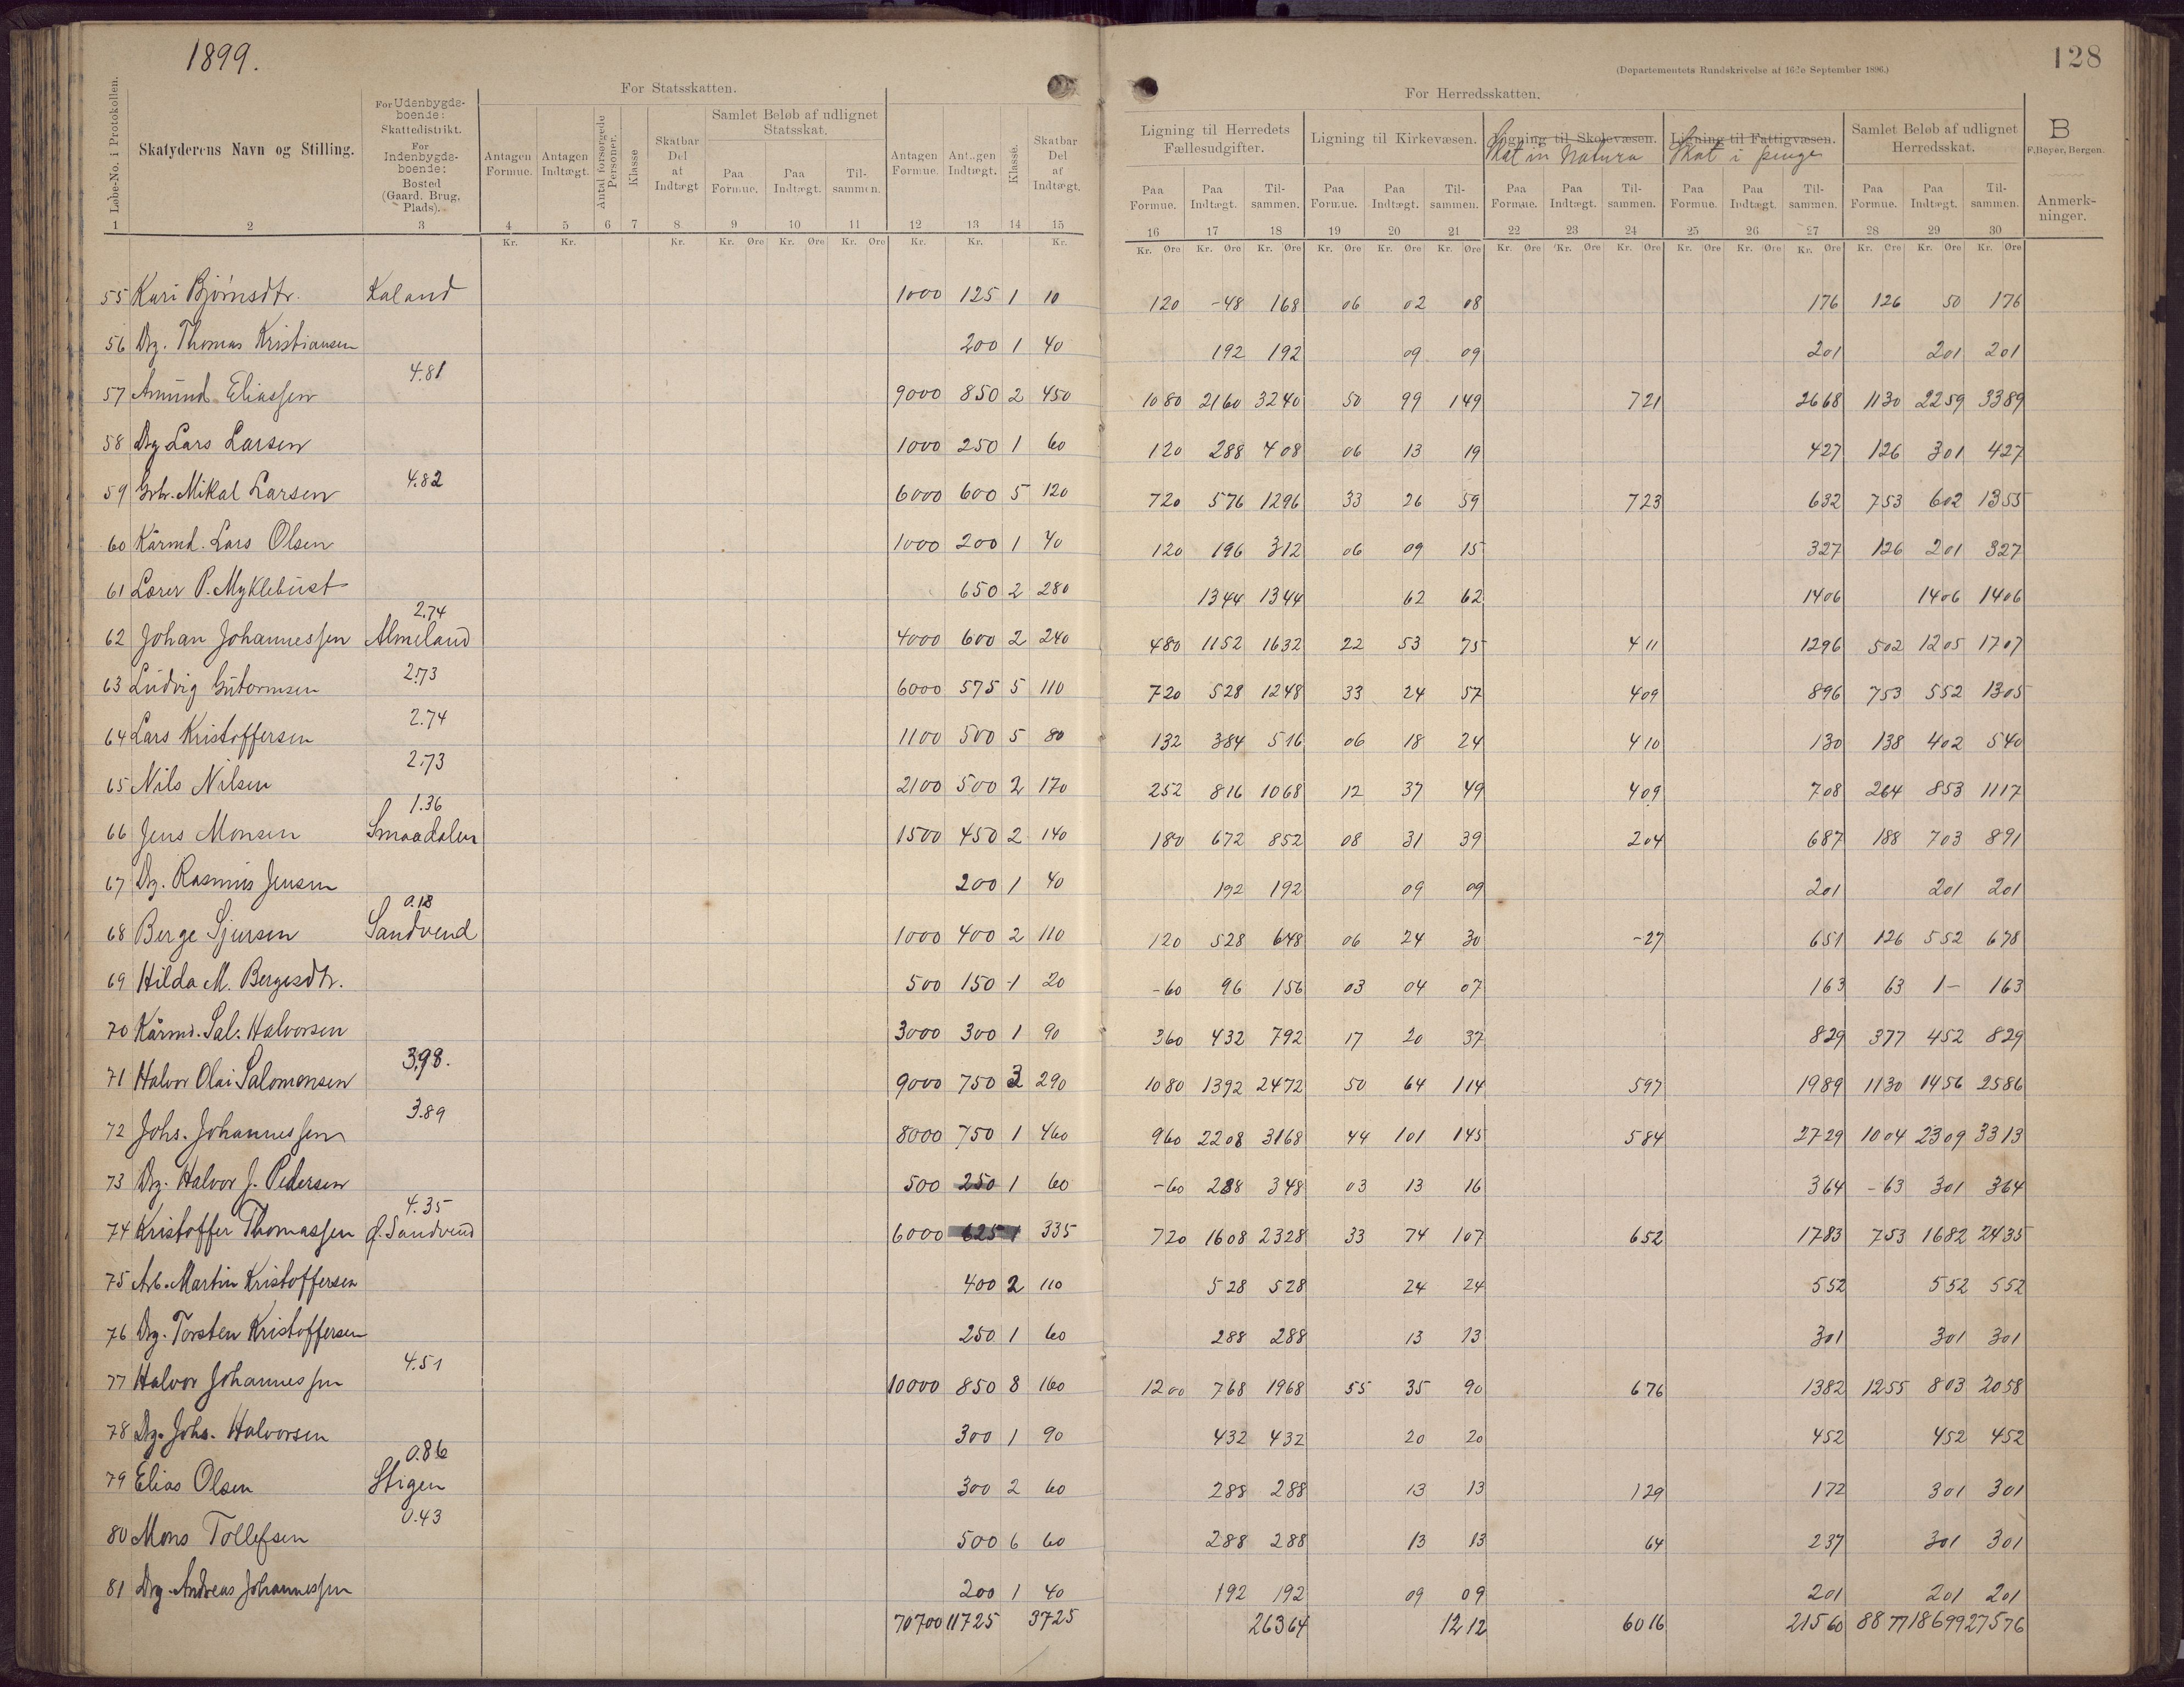 1899.
128
(Departementets Rundskrivelse af 16de September 1896.)
For Statsskatten.
For Herredsskatten.
Løbe-No. i Protokollen.
Skatyderens Navn og Stilling.
For Udenbygds-boende: Skattedistrikt. For Indenbygds-boende: Bosted (Gaard, Brug, Plads).
Antagen Formue.
Antagen Indtægt.
Antal forsørgede Personer.
Klasse
Skatbar Del af Indtægt
Samlet Beløb af udlignet Statsskat.
Paa Formue. Paa Indtægt. Til-sammen.
Antagen Formue.
Antagen Indtægt.
Klasse.
Skatbar Del af Indtægt.
Ligning til Herredets Fællesudgifter.
Ligning til Kirkevæsen.
Ligning til Skolevæsen.
Skat in Natura
Ligning til Fattigvæsen.
Skat i penge
Samlet Beløb af udlignet Herredsskat.
B
F. Beyer, Bergen.
Anmerk-ninger.
Paa Formue. Paa Indtægt. Til-sammen. Paa Formue. Paa Indtægt. Til-sammen. Paa Formue. Paa Indtægt. Til-sammen. Paa Formue. Paa Indtægt. Til-sammen. Paa Formue. Paa Indtægt. Til-sammen.
1 2 3 4 5 6 7 8 9 10 11 12 13 14 15 16 17 18 19 20 21 22 23 24 25 26 27 28 29 30
Kr. Kr. Kr. Kr. Øre Kr. Øre Kr. Øre Kr. Kr. Kr. Kr. Øre Kr. Øre Kr. Øre Kr. Øre Kr. Øre Kr. Øre Kr. Øre Kr. Øre Kr. Øre Kr. Øre Kr. Øre Kr. Øre Kr. Øre Kr. Øre Kr. Øre
55 Kari Bjørnsdtr. Kaland 1000 125 1 10 120 -48 168 06 02 08 176 126 50 176
56 Drg. Thomas Kristiansen 200 1 40 192 192 09 09 201 201 201
4.81
57 Amund Eliassen 9000 850 2 450 1080 2160 3240 50 99 149 721 2668 1130 2259 3389
58 Drg Lars Larsen 1000 250 1 60 120 288 408 06 13 19 427 126 301 427
4.82
59 Grbr. Mikal Larsen 6000 600 5 120 720 576 1296 33 26 59 723 632 753 602 1355
60 Kårmd. Lars Olsen 1000 200 1 40 120 196 312 06 09 15 327 126 201 327
61 Lærer P. Myklebust 650 2 280 1344 1344 62 62 1406 1406 1406
2.74
62 Johan Johannessen Almeland 4000 600 2 240 480 1152 1632 22 53 75 411 1296 502 1205 1707
2.73
63 Ludvig Gutormsen 6000 575 5 110 720 528 1248 33 24 57 409 896 753 552 1305
2.74
64 Lars Kristoffersen 1100 500 5 80 132 384 516 06 18 24 410 130 138 402 540
2.73
65 Nils Nilsen 2100 500 2 170 252 816 1068 12 37 49 409 708 264 853 1117
1.36
66 Jens Monsen Smaadalen 1500 450 2 140 180 672 852 08 31 39 204 687 188 703 891
67 Drg. Rasmus Jensen 200 1 40 192 192 09 09 201 201 201
0.18
68 Berge Sjursen Sandvend 1000 400 2 110 120 528 648 06 24 30 -27 651 126 552 678
69 Hilda M. Bergesdtr. 500 150 1 20 -60 96 156 03 04 07 163 63 1- 163
70 Kårmd. Sal. Halvorsen 3000 300 1 90 360 432 792 17 20 37 829 377 452 829
3.98.
71 Halvor Olai Salomonsen 9000 750 3 290 1080 1392 2472 50 64 114 597 1989 1130 1456 2586
3.89
72 Johs. Johannessen 8000 750 1 460 960 2208 3168 44 101 145 584 2729 1004 2309 3313
73 Drg. Halvor J. Pedersen 500 250 1 60 -60 288 348 03 13 16 364 -63 301 364
4.35
74 Kristoffer Thomassen Ø. Sandvend 6000 625 1 335 720 1608 2328 33 74 107 652 1783 753 1682 2435
75 Arb. Martin Kristoffersen 400 2 110 528 528 24 24 552 552 552
76 Drg. Torsten Kristoffersen 250 1 60 288 288 13 13 301 301 301
4.51
77 Halvor Johannessen 10000 850 8 160 1200 768 1968 55 35 90 676 1382 1255 803 2058
78 Drg. Johs. Halvorsen 300 1 90 432 432 20 20 452 452 452
0.86
79 Elias Olsen Stigen 300 2 60 288 288 13 13 129 172 301 301
0.43
80 Mons Tollefsen 500 6 60 288 288 13 13 64 237 301 301
81 Drg. Andreas Johannessen 200 1 40 192 192 09 09 201 201 201
70700 11725 3725 26364 1212 6016 21560 8877 18699 27576